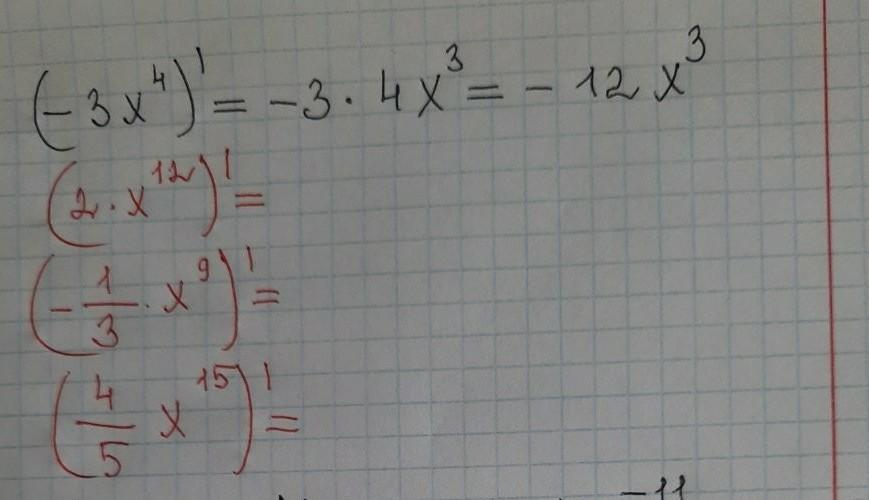 (-3x⁴)' = -3 · 4x³ = -12x³
(2 · x¹²)' =
(-1/3 · x⁹)' =
(4/5 x¹⁵)' =
-11